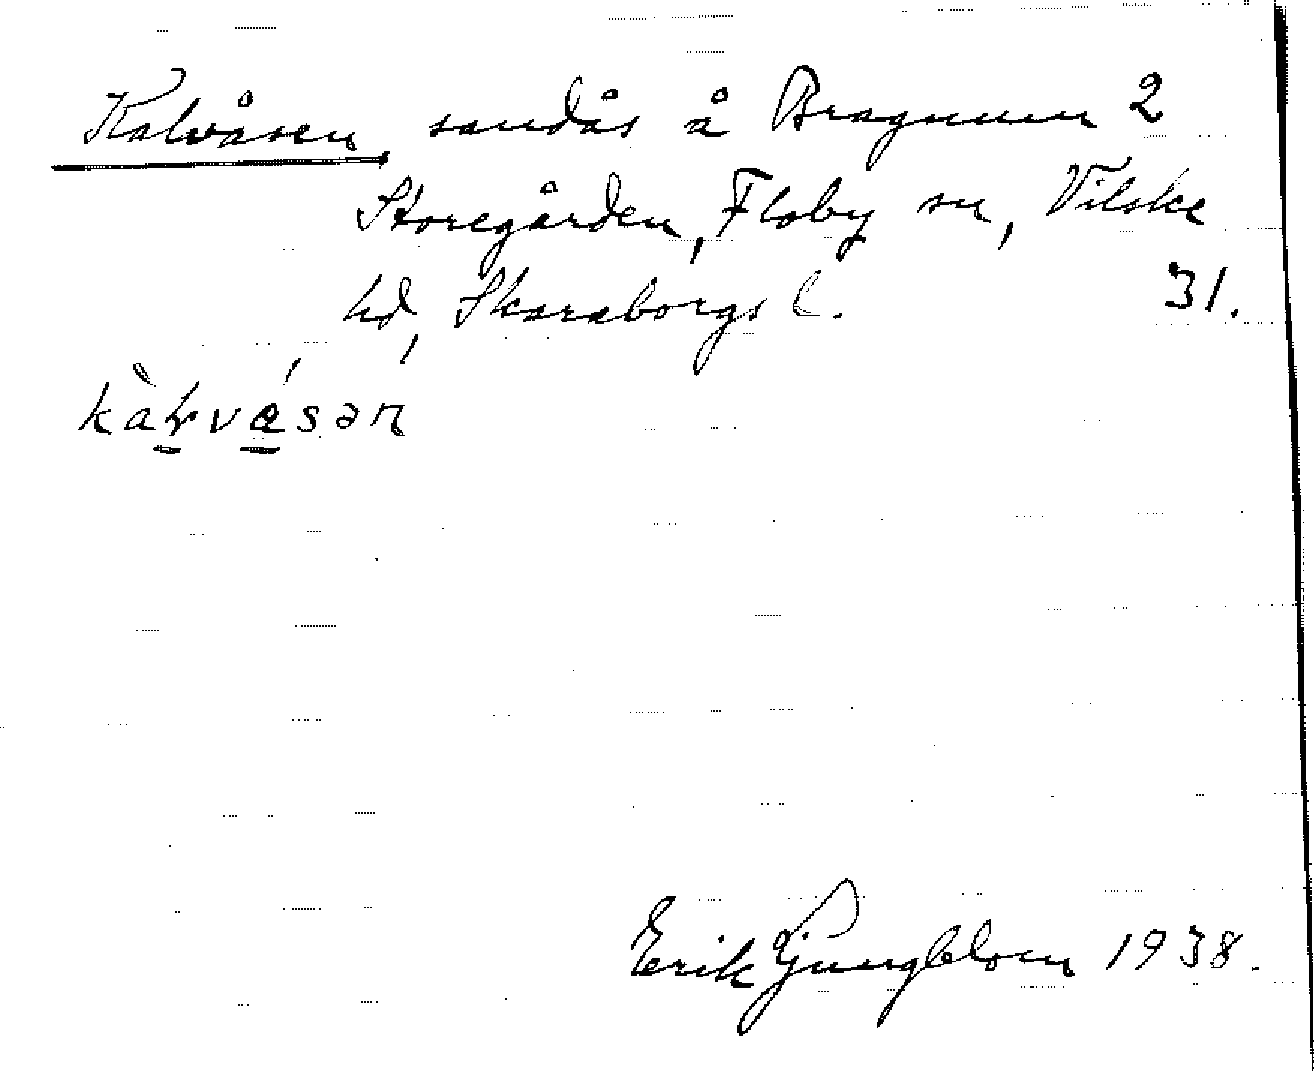 Kalvåsen sandås å Bragnum 2
Storegården, Floby sn, Vilske
hd, Skaraborgs l. 31.
kàḷvåsən
Erik Ljungblom 1938.